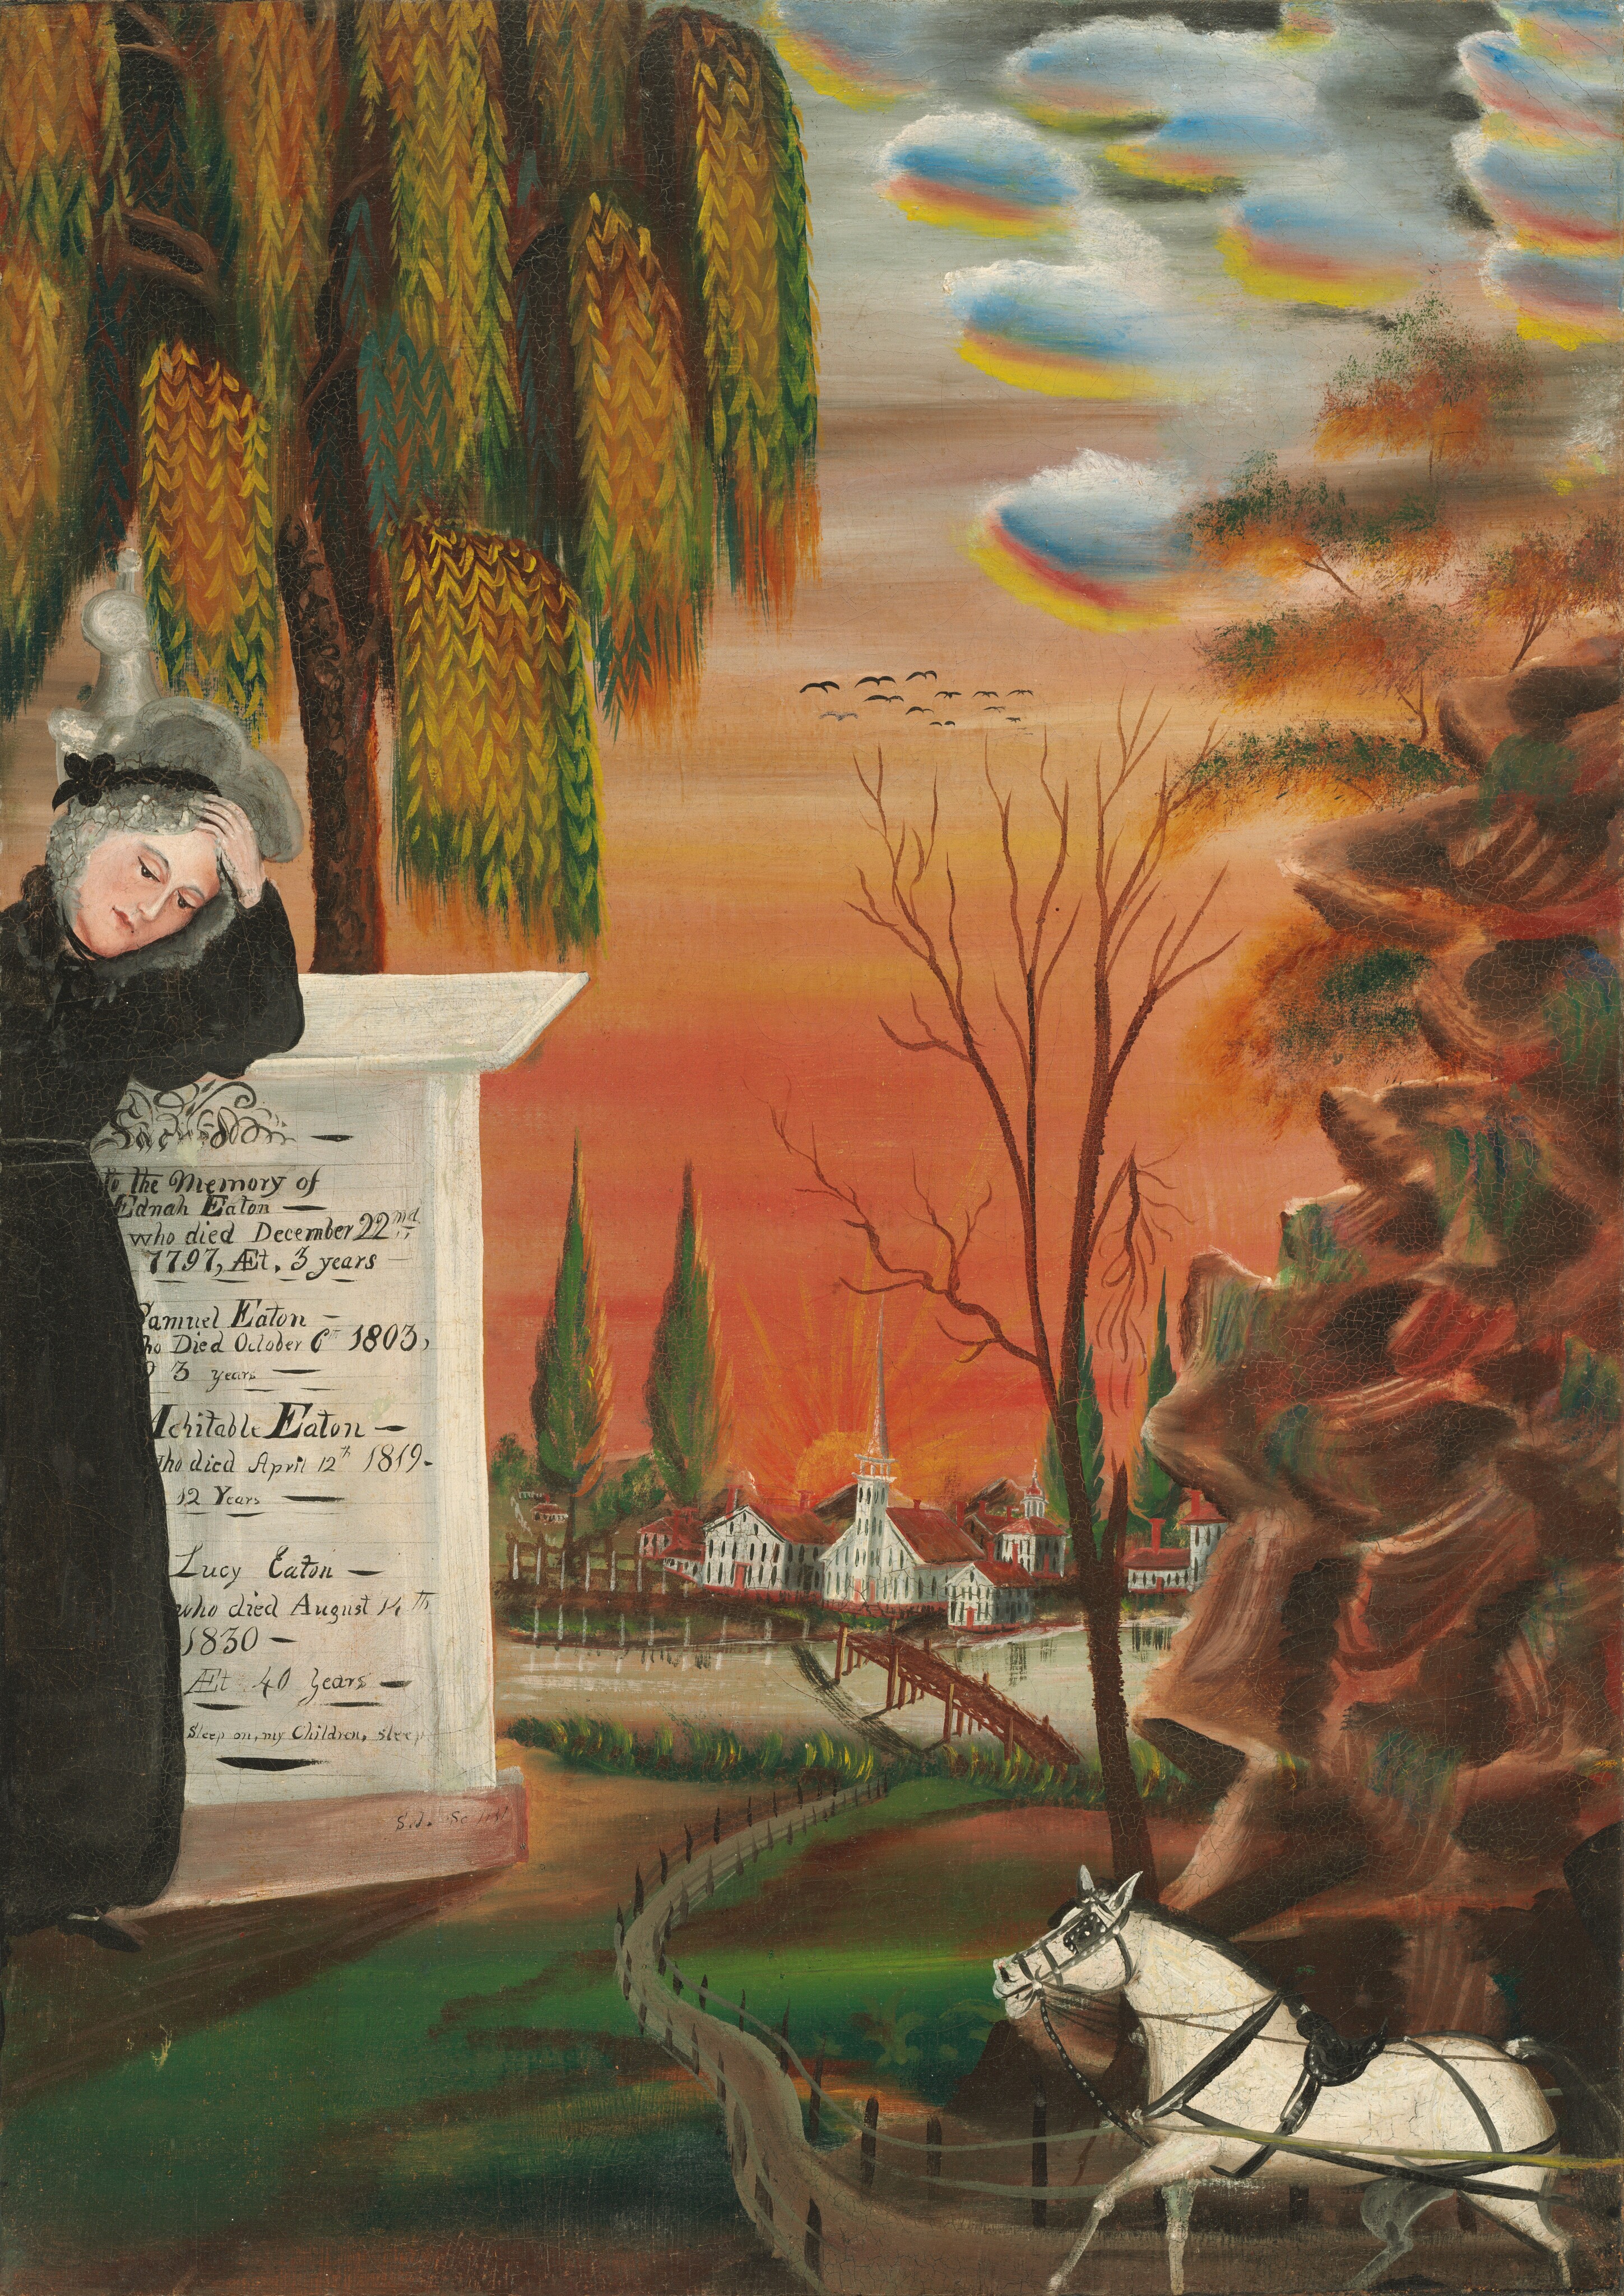 Sacred
to the Memory of
Ednah Eaton
who died December 22nd
1797, Æt. 3 years
Samuel Eaton
ho Died October 6th 1803,
3 years
Mehitable Eaton
who died April 12th 1819.
12 Years
Lucy Eaton
who died August 14th
1830
Æt 40 Years
Sleep on, my Children, sleep